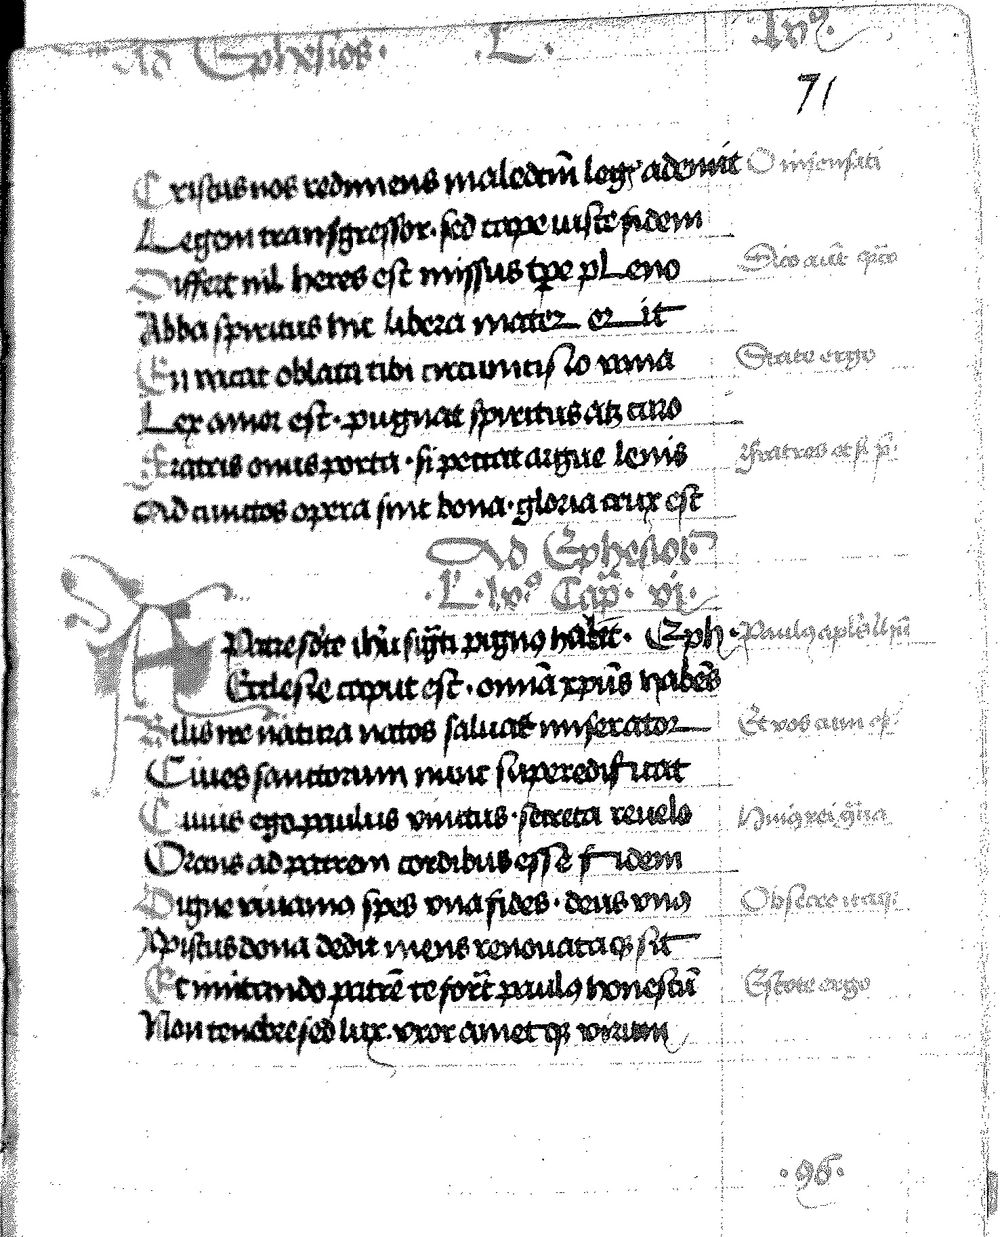 Ad Ephesios · L · lvº
71
Cristus nos redimens maledcm̄ legꝭ ademit O insensati
Legem transgressor · sed cape iuste fidem
Differt nil heres est missus tp̄e pleno Dico aut̄
Abba spiritus hinc libera mater erit
En vacat oblata tibi circumcisio vana State ergo
Lex amor est · pugnat spiritus atqꝫ caro
Fratris onus porta · si peccat argue lenis Fratres et si p̄
Ad cunctos opera sint bona · gloria crux est
Ad Ephesios
· L · lvº Cap̄ · vi ·
A Patre ihū pignꝰ · Eph · Paulꝰ apl̄s
Ecclesie caput est · omnia xpūs habēs
Filius ire natura natos saluat miserator Et vos cum
Ciues sanctorum nunc superedificat
Cuius ego paulus vinctus · secreta reuelo Huiꝰ rei gr̄a
Orans ad patrem cordibus esse fidem
Digne viuamꝰ spes vna fides · deus vnꝰ Obsecro itaqꝫ
Xpistus dona dedit mens renouata qꝫ sit
Et imitando patrē te paulꝰ honestū Estote ergo
Non tenebre sed lux · vxor amet qꝫ virum
· 96 ·